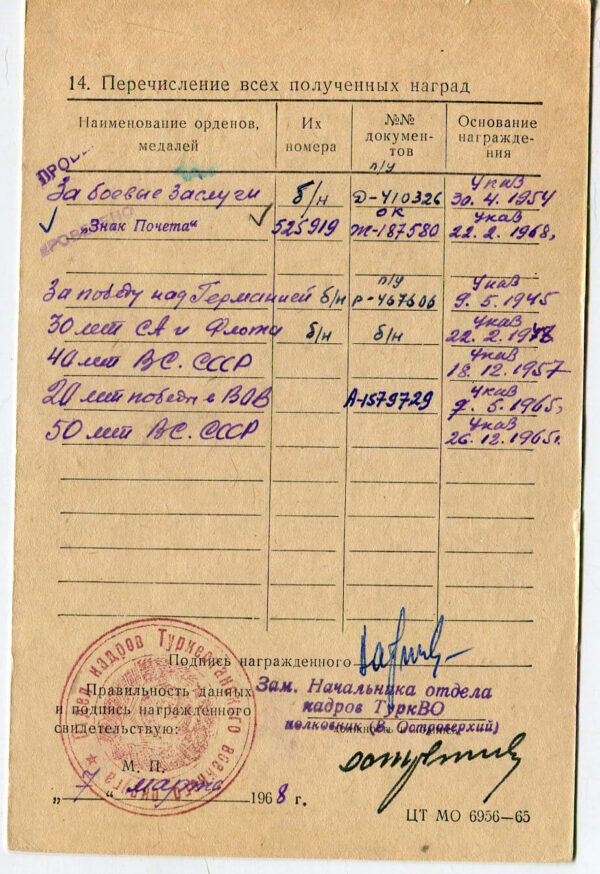 14. Перечисление всех полученных наград
Наименование орденов, медалей
Их номера
№№ докумен-тов
Основание награжде-ния
За боевые заслуги б/н п/у Д-410326 Указ 30.4.1954
„Знак Почета“ 525919 ОК Ж-187580 Указ 22.2.1968,
За победу над Германией б/н п/у Р-467606 Указ 9.5.1945
30 лет СА и Флота б/н б/н Указ 22.2.1948
40 лет ВС. СССР Указ 18.12.1957
20 лет победы в ВОВ А-1579729 Указ 7.5.1965,
50 лет ВС. СССР Указ 26.12.1965г.
Подпись награжденного
Правильность данных
и подпись награжденного
свидетельствую:
Зам. Начальника отдела
кадров ТуркВО
полковник (В. Островерхий)
М. П.
„7“ марта 1968 г.
ЦТ МО 6956—65
кадров Туркестанского военного округа